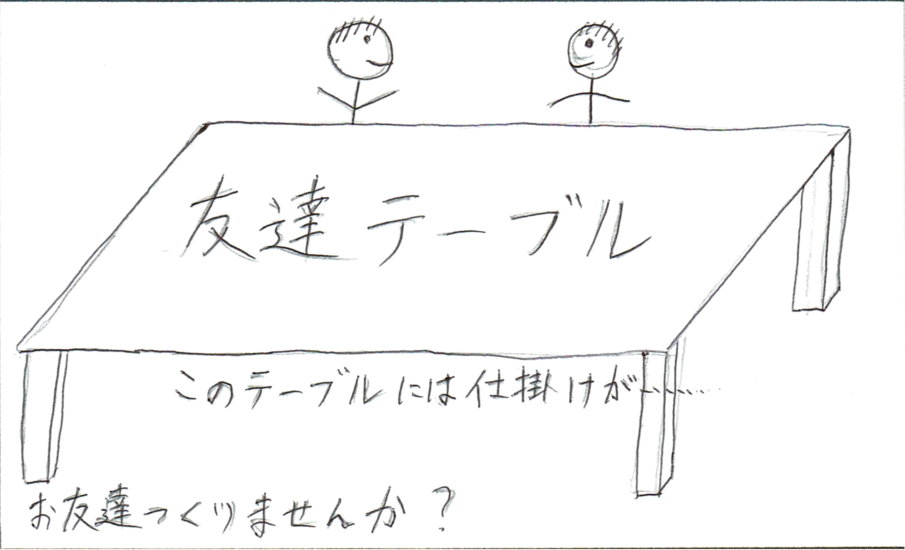 友達テーブル
このテーブルには仕掛けが………
お友達つくりませんか?